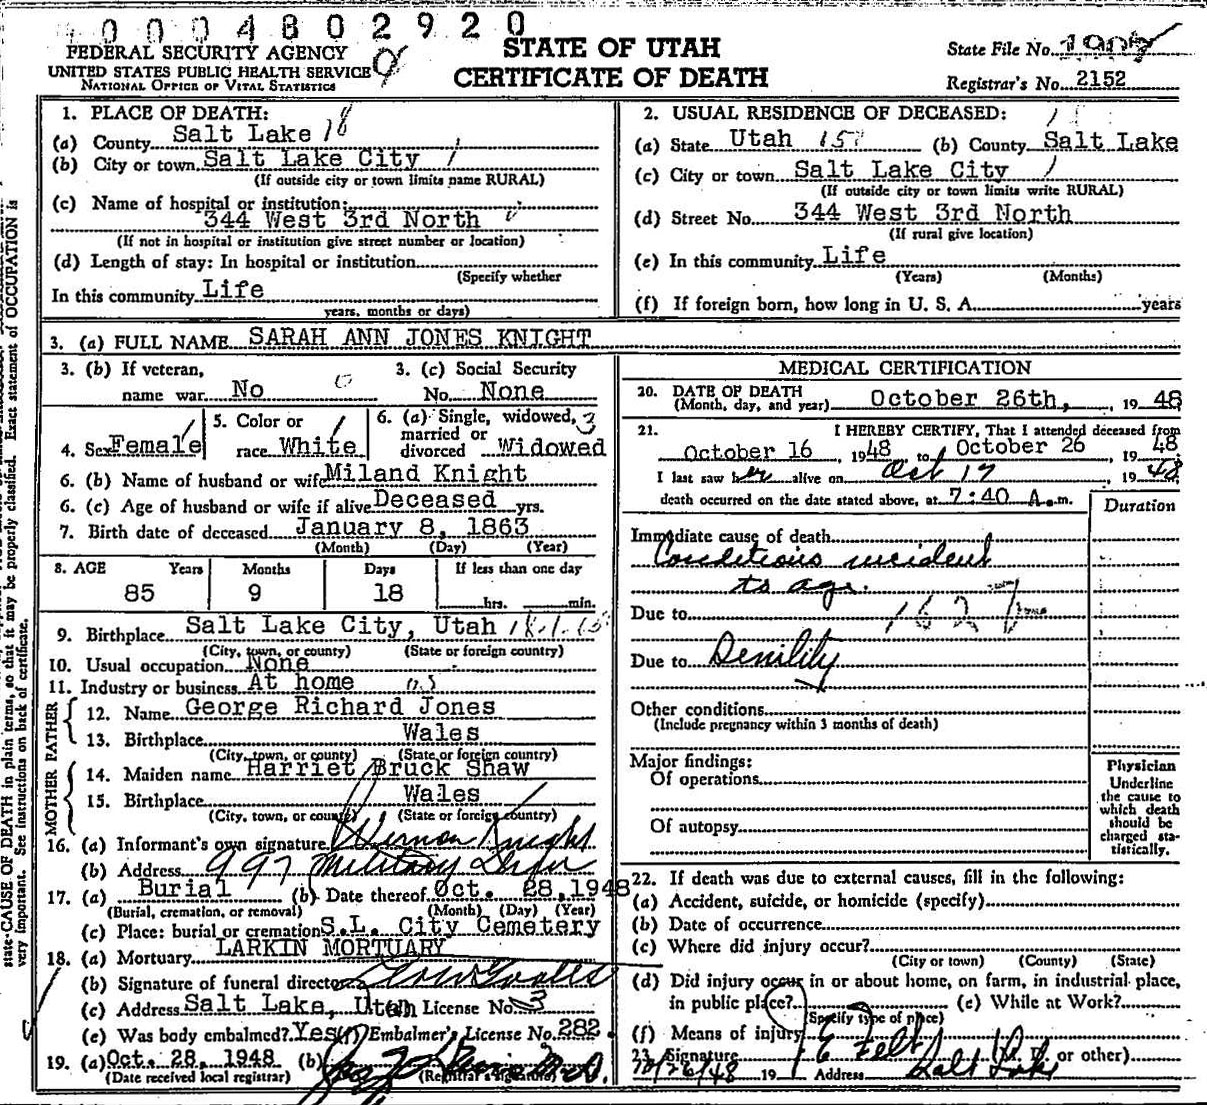 0004802920
FEDERAL SECURITY AGENCY
UNITED STATES PUBLIC HEALTH SERVICE
NATIONAL OFFICE OF VITAL STATISTICS
STATE OF UTAH
CERTIFICATE OF DEATH
State File No.
Registrar's No. 2152
1. PLACE OF DEATH:
(a) County Salt Lake 18
(b) City or town Salt Lake City 1
(If outside city or town limits name RURAL)
(c) Name of hospital or institution:
344 West 3rd North
(If not in hospital or institution give street number or location)
(d) Length of stay: In hospital or institution
(Specify whether
In this community Life
years, months or days)
2. USUAL RESIDENCE OF DECEASED:
(a) State Utah (b) County Salt Lake
(c) City or town Salt Lake City 1
(If outside city or town limits write RURAL)
(d) Street No. 344 West 3rd North
(If rural give location)
(e) In this community Life
(Years) (Months)
(f) If foreign born, how long in U. S. A. years
3. (a) FULL NAME SARAH ANN JONES KNIGHT
3. (b) If veteran, name war No
3. (c) Social Security No. None
4. Sex Female
5. Color or race White
6. (a) Single, widowed, married or divorced Widowed 3
6. (b) Name of husband or wife Miland Knight
6. (c) Age of husband or wife if alive Deceased yrs.
7. Birth date of deceased January 8, 1863
(Month) (Day) (Year)
8. AGE Years Months Days If less than one day
85 9 18 hrs. min.
9. Birthplace Salt Lake City, Utah
(City, town, or county) (State or foreign country)
10. Usual occupation None
11. Industry or business At home
FATHER
12. Name George Richard Jones
13. Birthplace Wales
(City, town, or county) (State or foreign country)
MOTHER
14. Maiden name Harriet Bruck Shaw
15. Birthplace Wales
(City, town, or county) (State or foreign country)
16. (a) Informant's own signature Vernon Knight
(b) Address 997 Military Drive
17. (a) Burial (b) Date thereof Oct. 28, 1948
(Burial, cremation, or removal) (Month) (Day) (Year)
(c) Place: burial or cremation S.L. City Cemetery
18. (a) Mortuary LARKIN MORTUARY
(b) Signature of funeral director
(c) Address Salt Lake, Utah License No. 3
(e) Was body embalmed? Yes Embalmer's License No. 282.
19. (a) Oct. 28, 1948 (b)
(Date received local registrar) (Registrar's signature)
MEDICAL CERTIFICATION
20. DATE OF DEATH
(Month, day, and year) October 26th, , 19 48
21. I HEREBY CERTIFY, That I attended deceased from
October 16 , 19 48 , to October 26 , 19 48
I last saw her alive on Oct 17 , 19 48
death occurred on the date stated above, at 7:40 A. m.
Duration
Immediate cause of death
Conditions incident
to age.
Due to 162
Due to Senility
Other conditions
(Include pregnancy within 3 months of death)
Major findings:
Of operations
Of autopsy
Physician
Underline
the cause to
which death
should be
charged sta-
tistically.
22. If death was due to external causes, fill in the following:
(a) Accident, suicide, or homicide (specify)
(b) Date of occurrence
(c) Where did injury occur?
(City or town) (County) (State)
(d) Did injury occur in or about home, on farm, in industrial place,
in public place? (e) While at Work?
(Specify type of place)
(f) Means of injury
23. Signature E Felt (M. D. or other)
10/26/48 19 Address Salt Lake
state CAUSE OF DEATH in plain terms, so that it may be properly classified. Exact statement of OCCUPATION is
very important. See instructions on back of certificate.